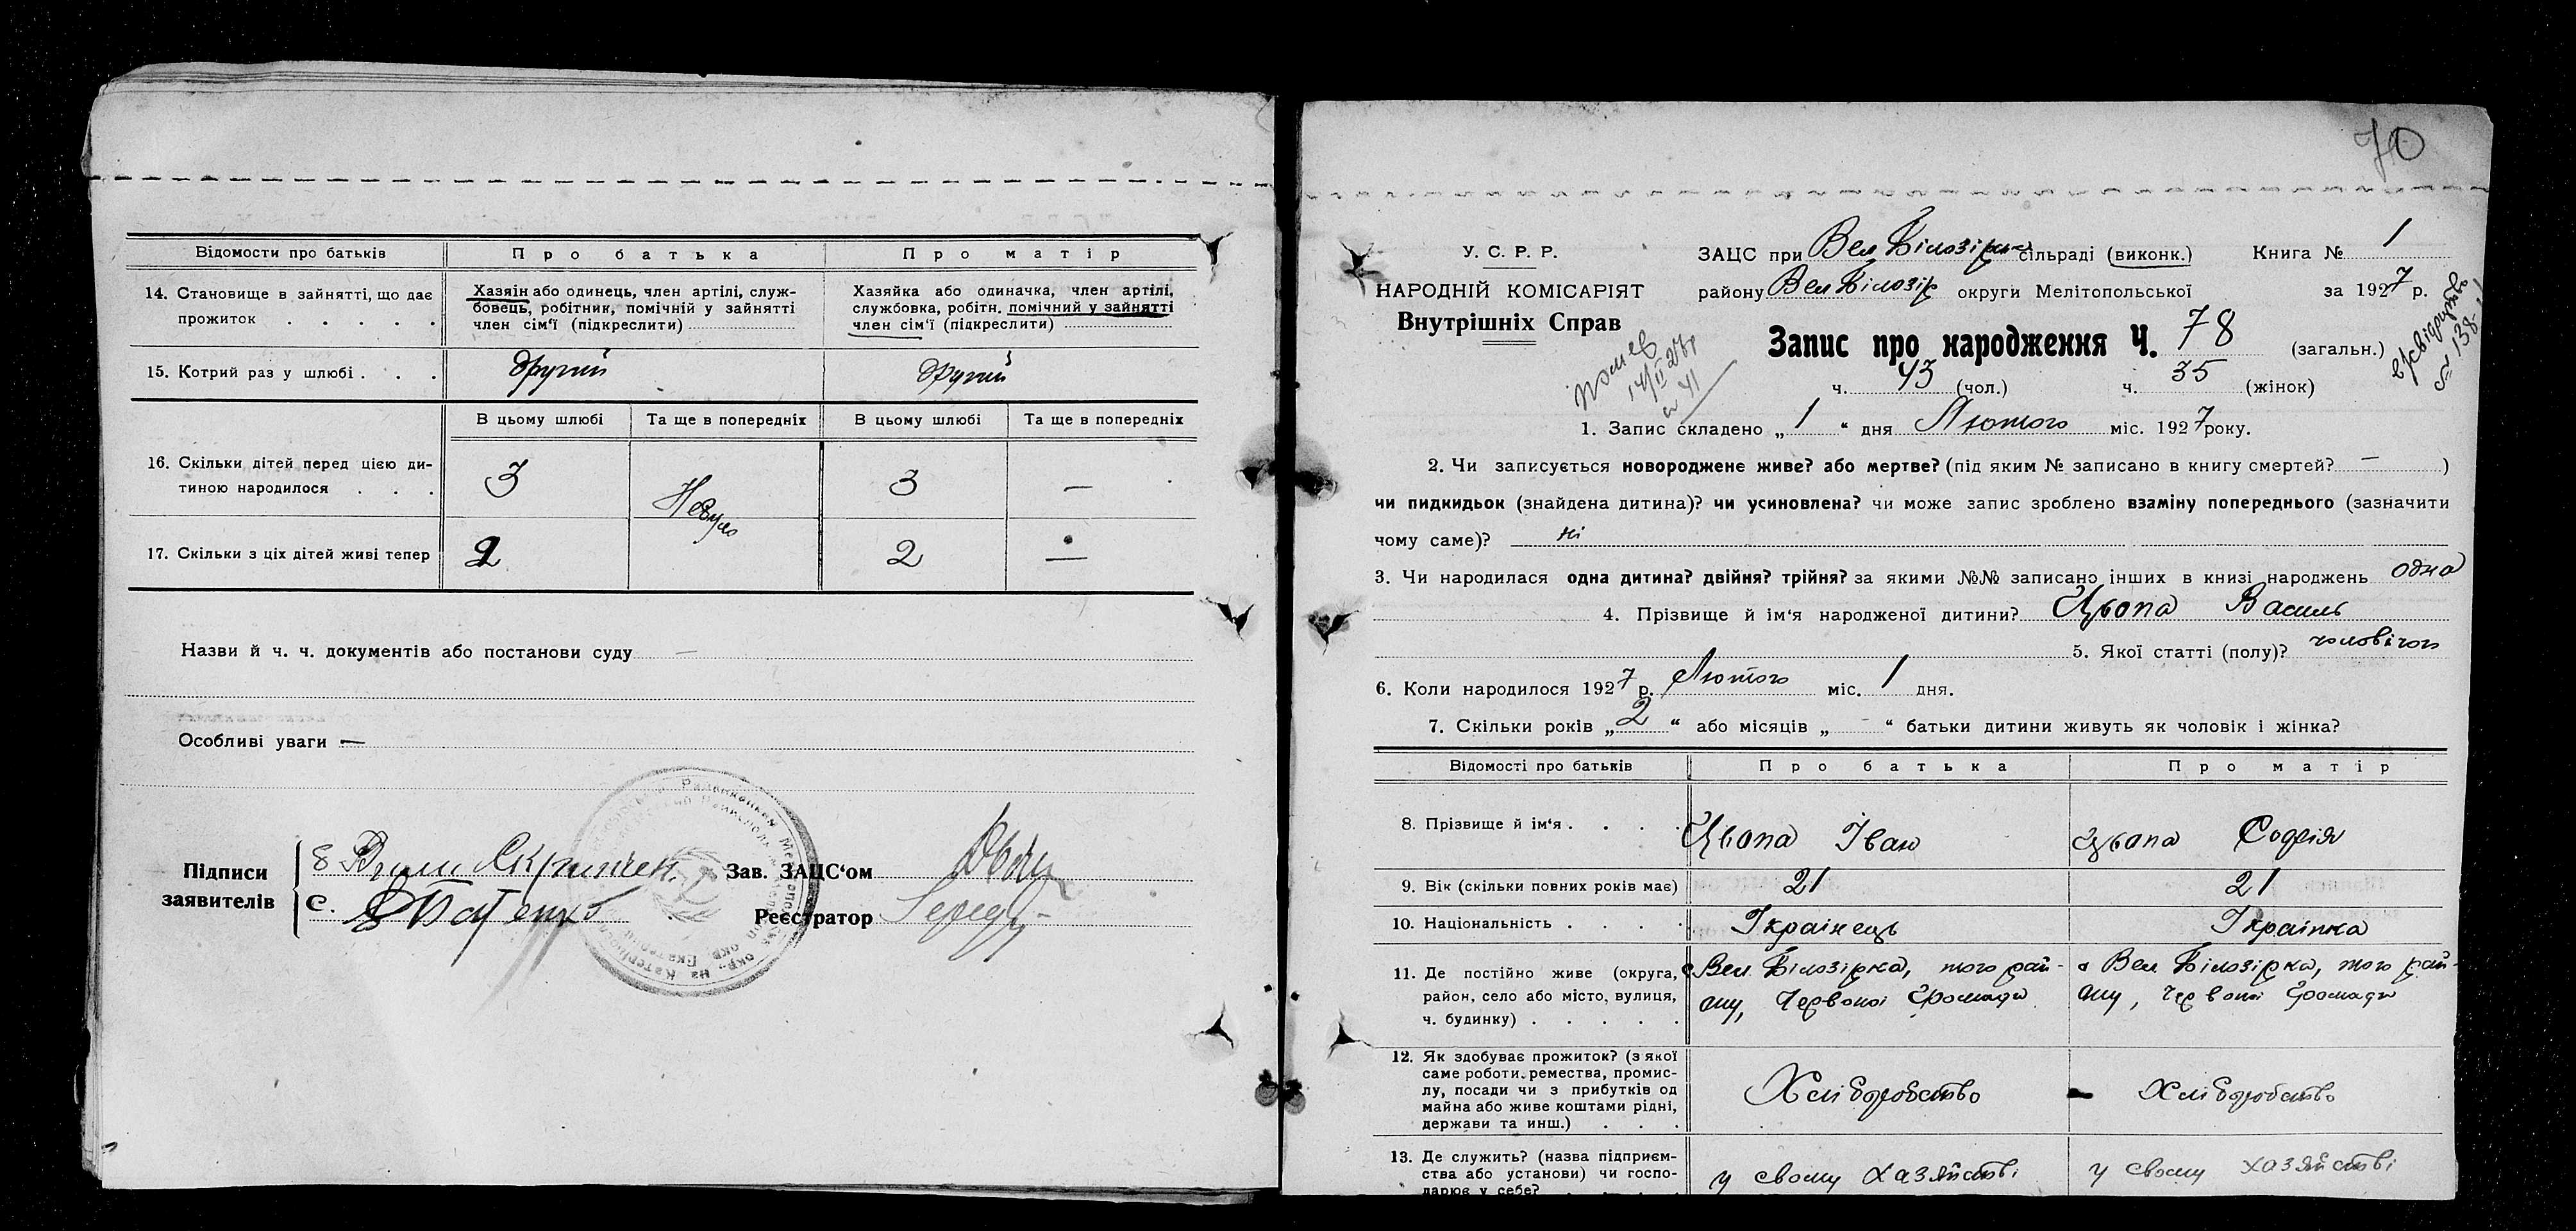 Відомости про батьків
Про батька
Про матір
14. Становище в зайнятті, що дає прожиток . . . . .
Хазяін або одинець, член артілі, служ-
бовець, робітник, помічній у зайнятті
член сім'ї (підкреслити)
Хазяйка або одиначка, член артілі,
службовка, робітн. помічний у зайнятті
член сім'ї (підкреслити)
15. Котрий раз у шлюбі . . .
другий
другий
В цьому шлюбі
Та ще в попередніх
В цьому шлюбі
Та ще в попередніх
16. Скільки дітей перед цією ди-
тиною народилося . . .
3
Небуло
3
—
17. Скільки з ціх дітей живі тепер
2
2
—
Назви й ч. ч. документів або постанови суду —
Особливі уваги —
Підписи
заявителів
Зав. ЗАЦС'ом
Реєстратор
70
У. С. Р. Р.
НАРОДНІЙ КОМІСАРІЯТ
Внутрішніх Справ
ЗАЦС при Вел Білозірск сільраді (виконк.)
Книга № 1
району Вел Білозір округи Мелітопольської
за 1927 р.
Запис про народження Ч. 78 (загальн.)
ч. 43 (чол.)
ч. 35 (жінок)
1. Запис складено „ 1 “ дня Лютого міс. 1927 року.
2. Чи записується новороджене живе? або мертве? (під яким № записано в книгу смертей? — )
чи пидкидьок (знайдена дитина)? чи усиновлена? чи може запис зроблено взаміну попереднього (зазначити
чому саме)? ні
3. Чи народилася одна дитина? двійня? трійня? за якими №№ записано інших в книзі народжень одна
4. Прізвище й ім'я народженої дитини? Цьопа Василь
5. Якої статті (полу)? чоловічої
6. Коли народилося 1927 р. Лютого міс. 1 дня.
7. Скільки років „ 2 “ або місяців „ - “ батьки дитини живуть як чоловік і жінка?
Відомості про батьків
Про батька
Про матір
8. Прізвище й ім'я . . . .
Цьопа Іван
Цьопа Софія
9. Вік (скільки повних років має)
21
21
10. Національність . . . .
Українець
Українка
11. Де постійно живе (округа,
район, село або місто, вулиця,
ч. будинку) . . . . .
с Вел. Білозірка, того рай-
ону, Червоної Громади
с Вел Білозірка, того рай-
ону, Червоної Громади
12. Як здобуває прожиток? (з якої
саме роботи, ремества, промис-
лу, посади чи з прибутків од
майна або живе коштами рідні,
держави та инш.) . . .
Хліборобство
Хліборобство
13. Де служить? (назва підприєм-
ства або установи) чи госпо-
дарює у себе? . . . .
у свому хазяйстві
у свому хазяйстві